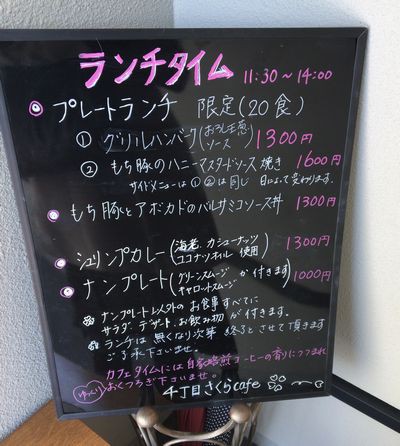 ランチタイム 11:30〜14:00
プレートランチ 限定(20食)
① グリルハンバーグ(おろし玉葱ソース) 1300円
② もち豚のハニーマスタードソース焼き 1600円
サイドメニューは①②は同じ 日によって変わります。
もち豚とアボカドのバルサミコソース丼 1300円
シュリンプカレー(海老、カシューナッツ ココナツオイル 使用) 1300円
ナンプレート(グリーンスムージー キャロットスムージー が付きます) 1000円
ナンプレート以外のお食事すべてに
サラダ、デザート、お飲み物が付きます。
ランチは無くなり次第 終了とさせて頂きます
ご了承下さいませ。
カフェタイムには自家焙煎コーヒーの香りにつつまれ
ゆっくり おくつろぎ下さいませ。
4丁目さくらcafe